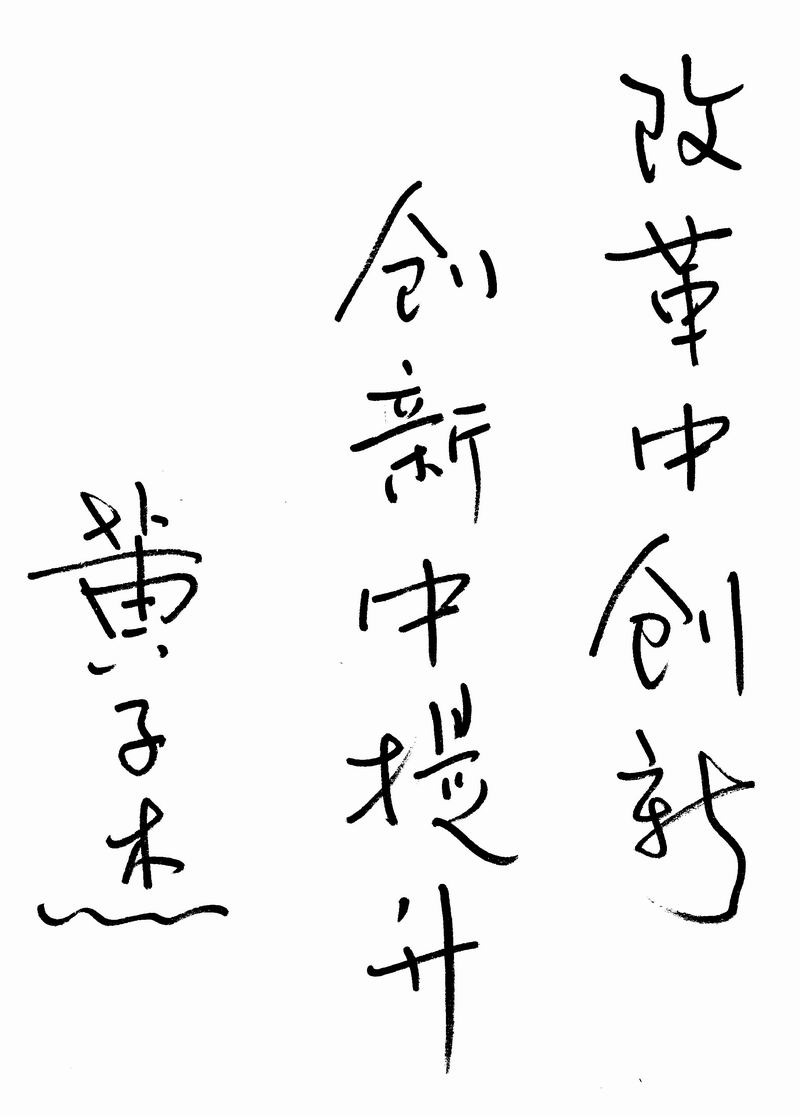 改革中创新
创新中提升
黄子杰